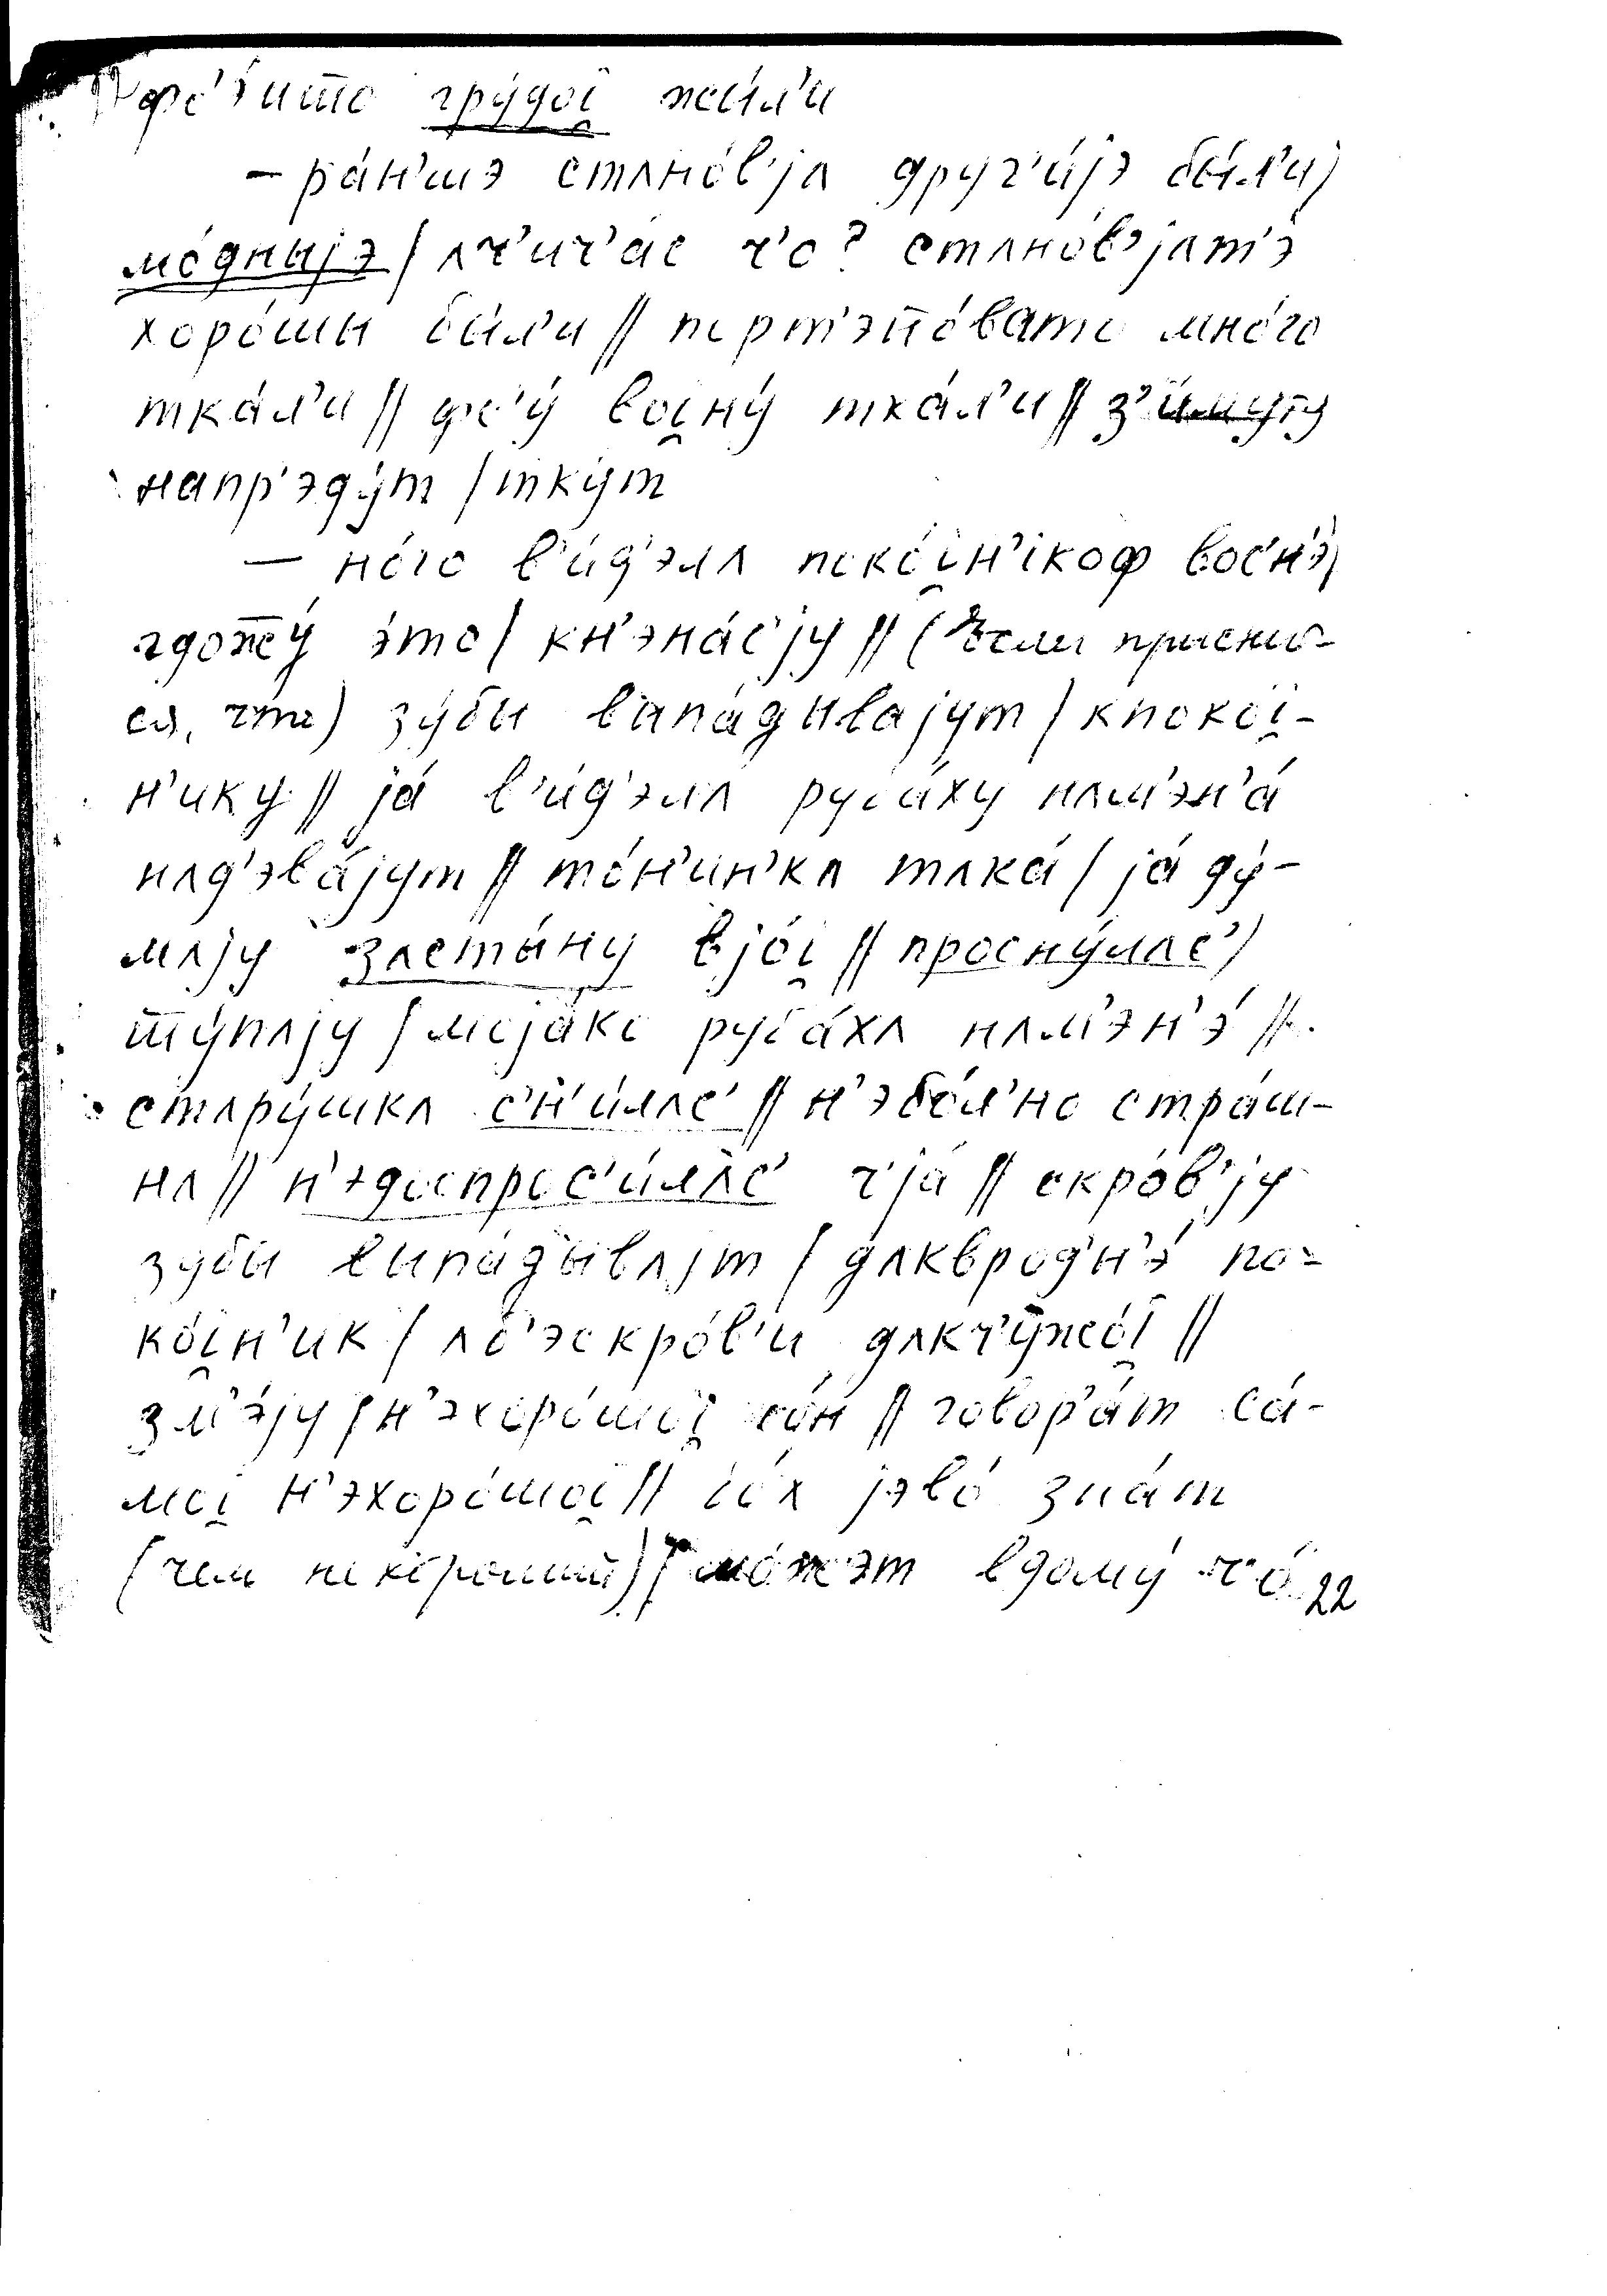 фс'о́ што гру́доі̯ жы́л'и
– ра́н'шэ стʌно́в'jʌ друг'и́jэ бы́л'и/
мо́дныjэ / ʌч'ич'а́с ч'о? стʌно́в'jʌт'э
хоро́шы бы́л'и // портэно́вато мно́го
тка́л'и // фс'у́ воі̯ну́ тка́л'и // з'и́муту
напр'эду́т / тку́т
– но́го в'и́д'эʌʌ поко́і̯н'ікоф восн'э́/
гдожу́ э́то / кн'эна́с'jу // (Если присни-
ся, что) зу́бы выпа́дывajут / кпокоі̯-
н'ику // já в'и́д'эла руба́ху нʌм'эн'а́
нʌд'эва́jут // то́н'ин'кʌ тʌка́ / já ду́-
мʌjу зʌсты́ну вjо́і̯ // просну́лʌс'/
шту́пʌjу / моjа́ко руба́хʌ нʌм'эн'э́ //
стʌру́шкʌ с'н'и́лʌс' // н'эбо́л'но стра́ш-
нʌ // н'эдоспрос'и́лʌс' ч'jа́ // скро́в'jу
зубы выпа́дывʌjт / дʌквродн'э́ по-
ко́і̯н'ик / ʌб'эскро́в'и дʌкч'ужо́і̯ //
зм'э́jу / н'эхоро́шоі̯ со́н // говор'а́т са́-
моі̯ н'эхоро́шоі̯ // jо́х jэво́ зна́т
(чем нехороший) / мо́жэт вдому́ ч'о́
22